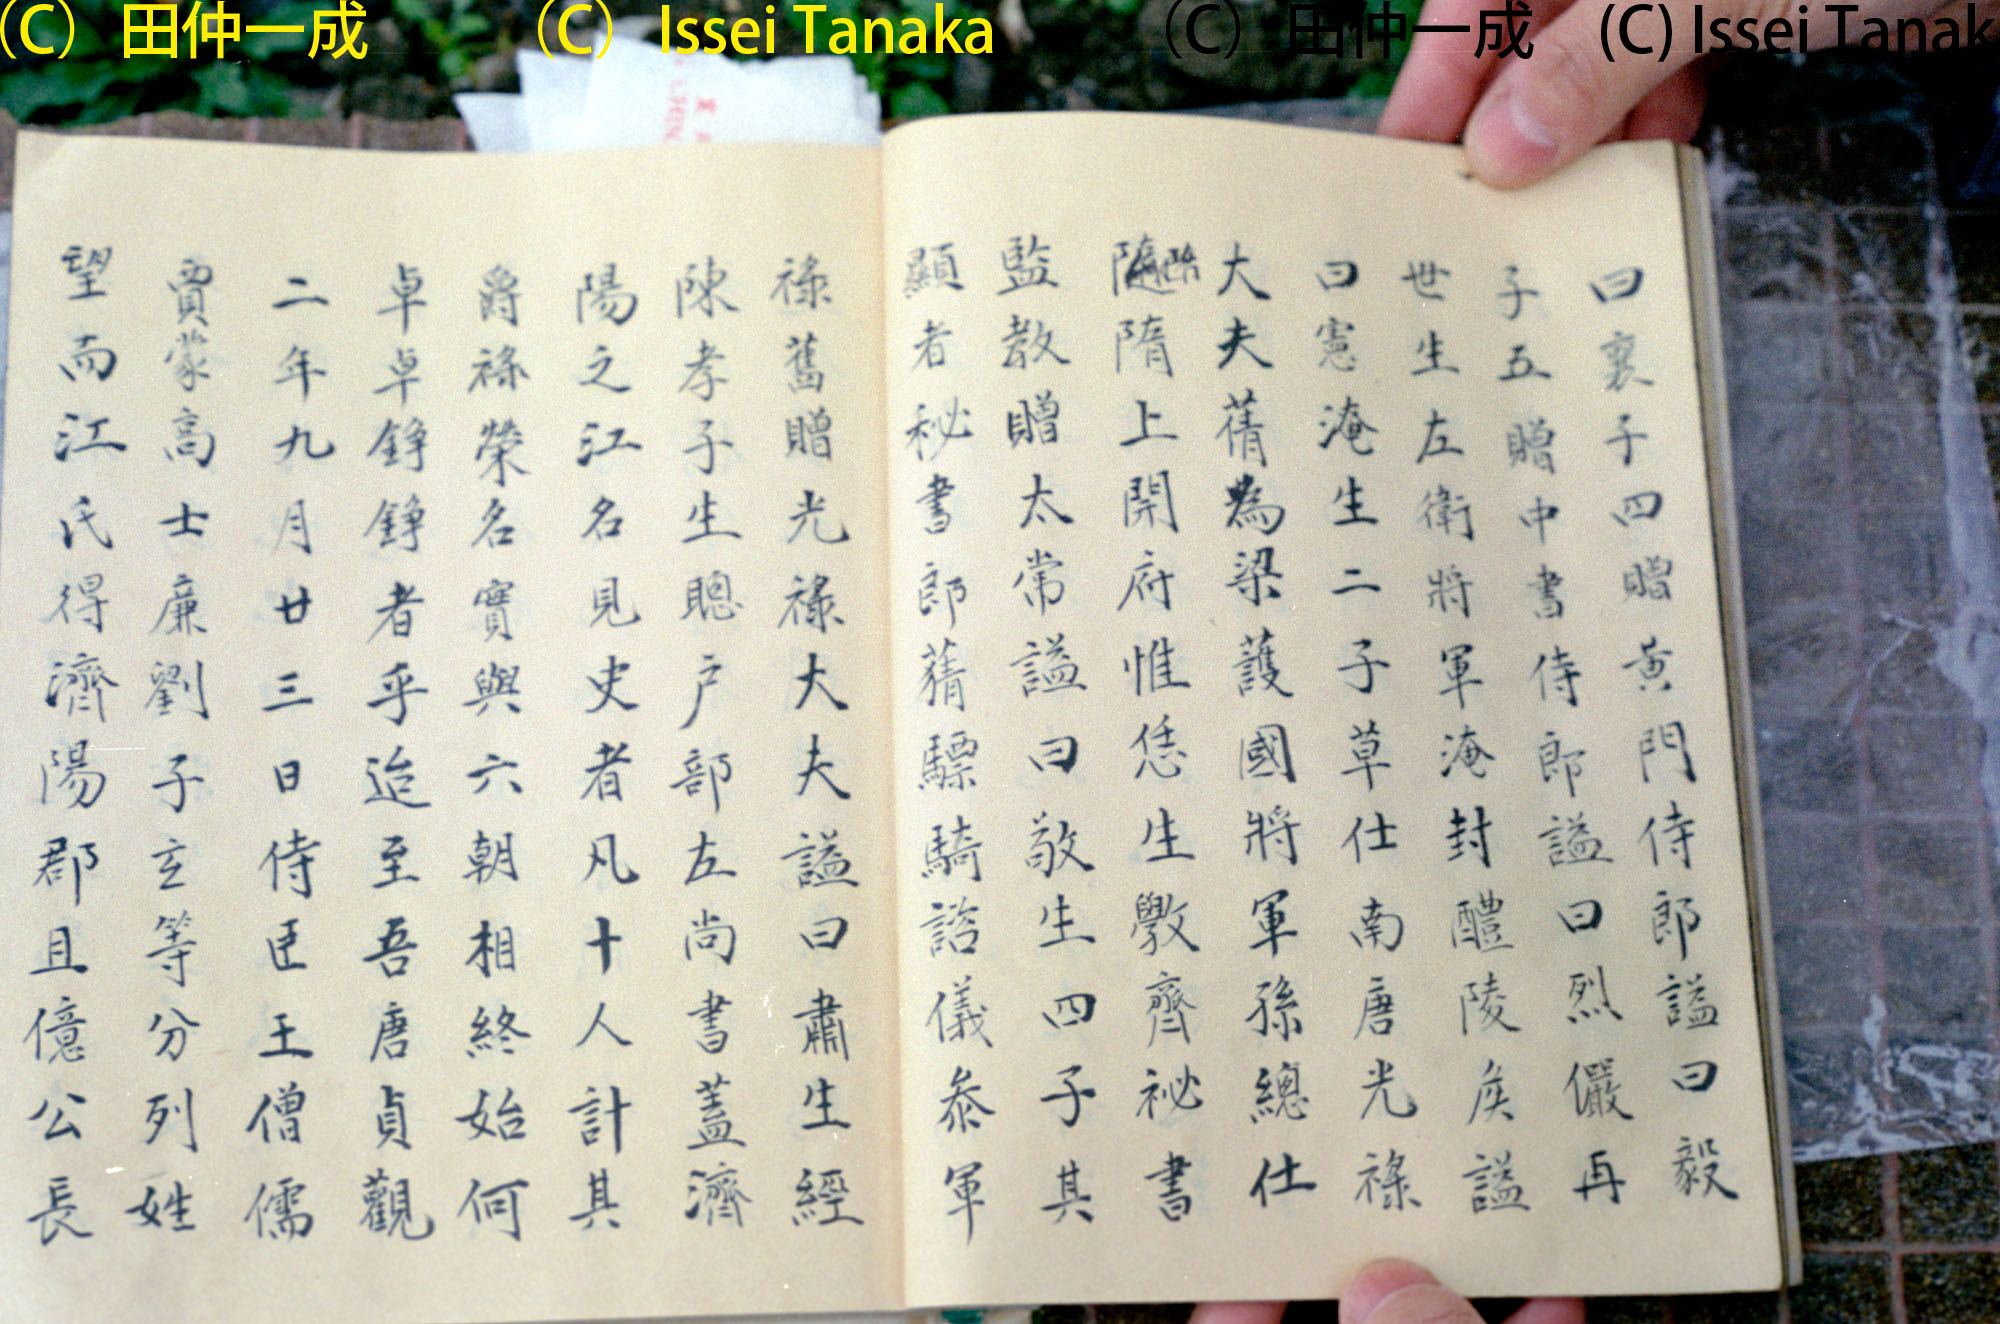 (C) 田仲一成 (C) Issei Tanaka (C) 田仲一成 (C) Issei Tanak
曰襄子四贈黄門侍郎謚曰毅
子五贈中書侍郎謚曰烈儼再
世生左衛將軍淹封醴陵侯謚
曰憲淹生二子草仕南唐光祿
大夫蒨為梁護國將軍孫總仕
隋上開府惟恁生斆齊祕書
監敩贈太常謚曰敬生四子其
顯者秘書郎蒨驃騎諮儀叅軍
祿舊贈光祿大夫謚曰肅生經
陳孝子生聰户部左尚書蓋濟
陽之江名見史者凡十人計其
爵祿榮名實與六朝相終始何
卓卓錚錚者乎迨至吾唐貞觀
二年九月廿三日侍臣王僧儒
賈蒙高士廉劉子玄等分列姓
望而江氏得濟陽郡且億公長